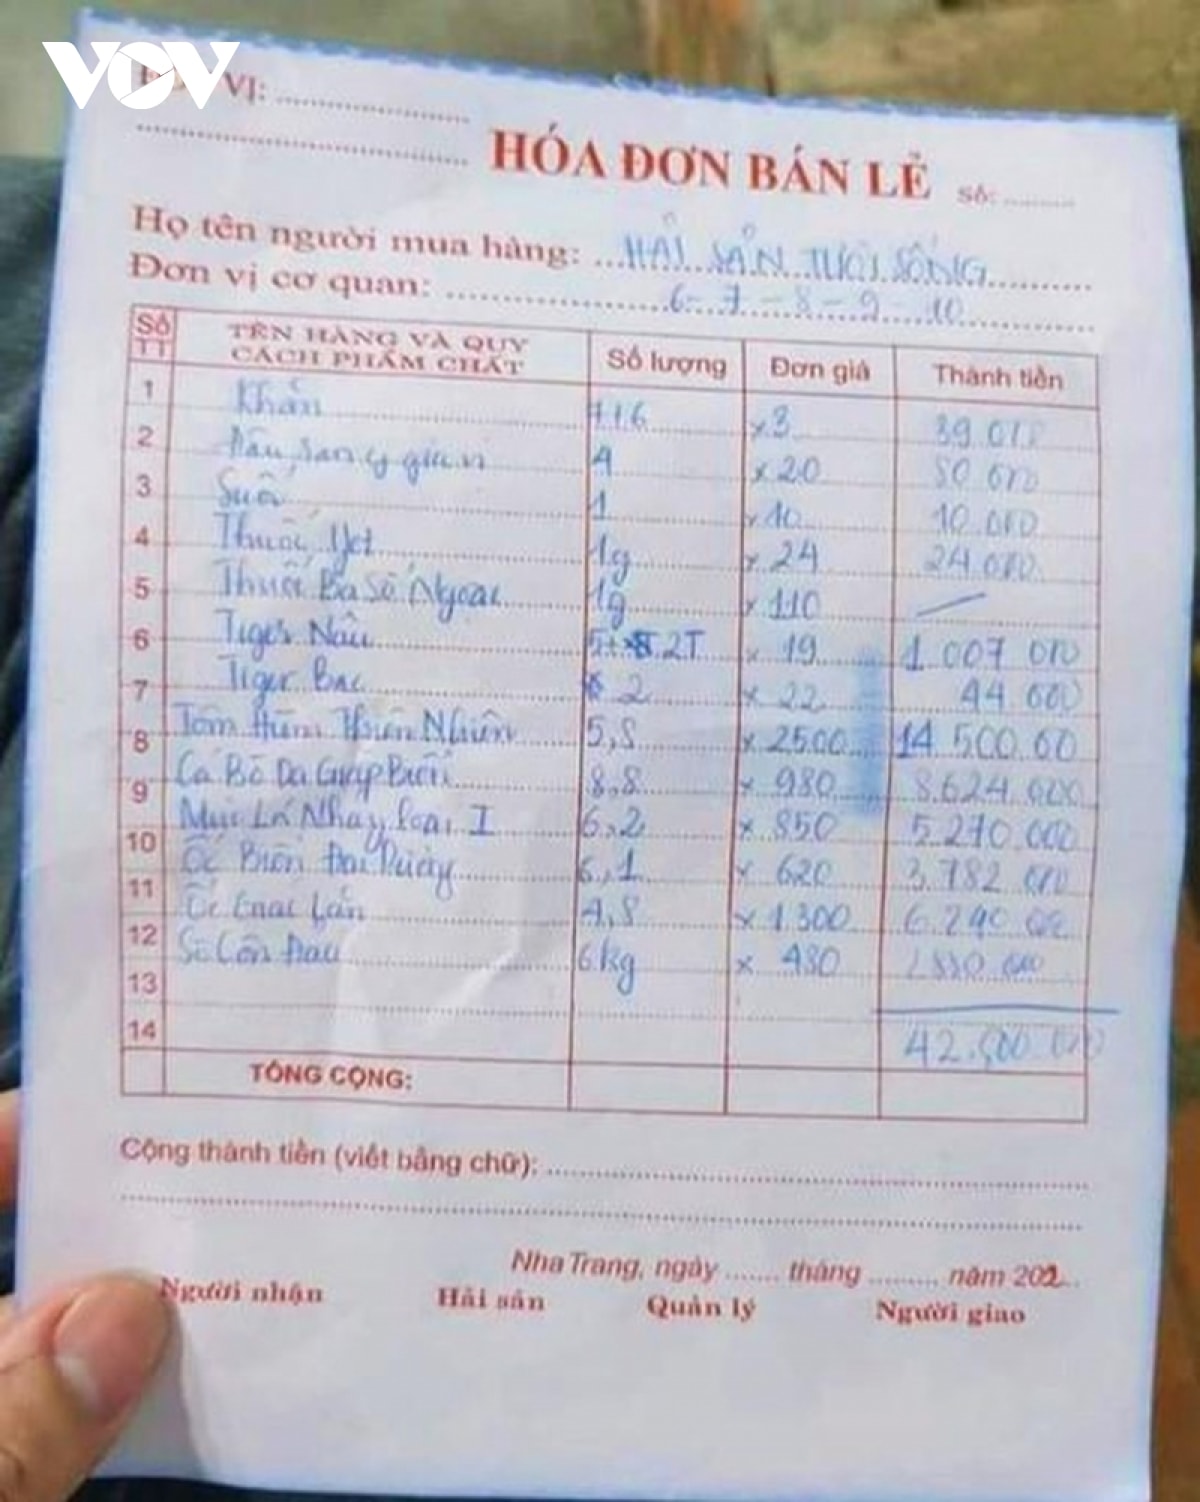 VOV
VỊ: ....................
HÓA ĐƠN BÁN LẺ Số: ..........
Họ tên người mua hàng: HẢI SẢN TƯƠI SỐNG
Đơn vị cơ quan: 6-7-8-9-10
Số TT TÊN HÀNG VÀ QUY CÁCH PHẨM CHẤT Số lượng Đơn giá Thành tiền
1 Khăn x3 39.000
2 x20 80.000
3 Suối 1 x10 10.000
4 Thuốc 1g x24 24.000
5 Thuốc Ba Số Ngoại 1g x110 —
6 Tiger Nâu 2T x 19 1.007.000
7 Tiger Bạc 2 x 22 44.000
8 Tôm Hùm Thiên Nhiên 5,8 x 2500 14.500.00
9 Cá Bò Da Giáp Biển 8,8 x 980 8.624.000
10 Mực Lá Nháy loại I 6,2 x 850 5.270.000
11 Ốc Biển Đại Dương 6,1 x 620 3.782.000
12 Ốc 4,8 x 1.300 6.240.000
13 6kg x 480
14 42.500.000
TỔNG CỘNG:
Cộng thành tiền (viết bằng chữ): ....................
Nha Trang, ngày ....... tháng ......... năm 202...
Người nhận Hải sản Quản lý Người giao